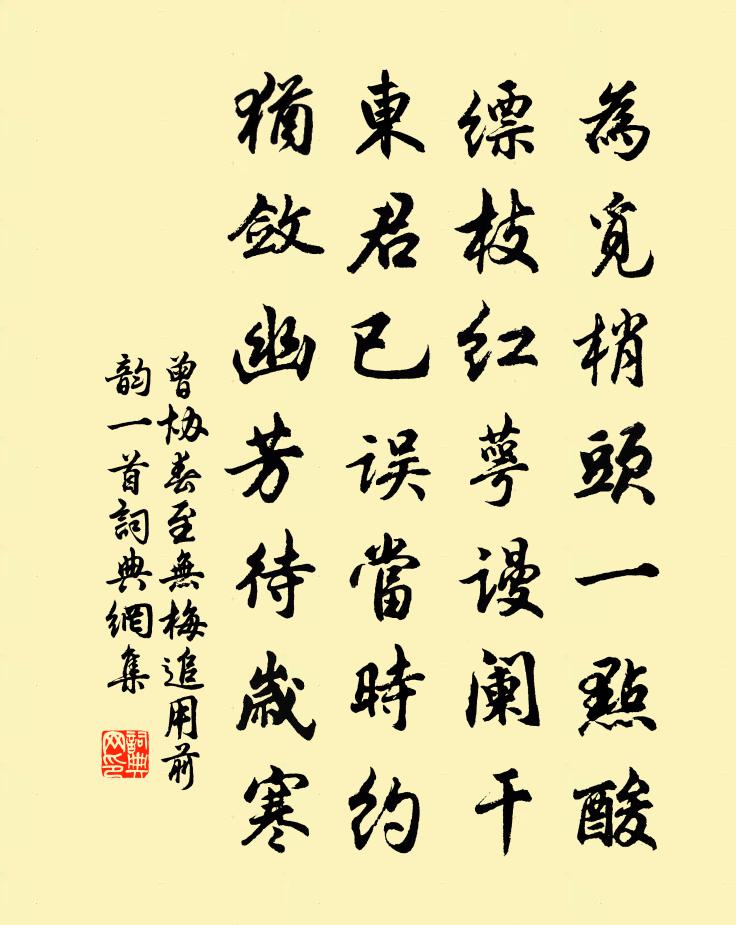 為覓梢頭一點酸
縹枝紅萼謾阑干
東君已误當時約
猶斂幽芳待歲寒
曾协春至無梅追用前
韵一首詞典網集
詞典
网印